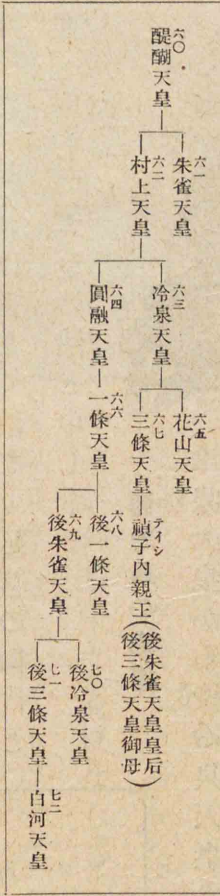 六〇
醍醐天皇
六一
朱雀天皇
六二
村上天皇
六三
冷泉天皇
六四
圓融天皇
六五
花山天皇
六七
三條天皇
テイシ
禎子内親王(後朱雀天皇皇后
後三條天皇御母)
六六
一條天皇
六八
後一條天皇
六九
後朱雀天皇
七〇
後冷泉天皇
七一
後三條天皇
七二
白河天皇